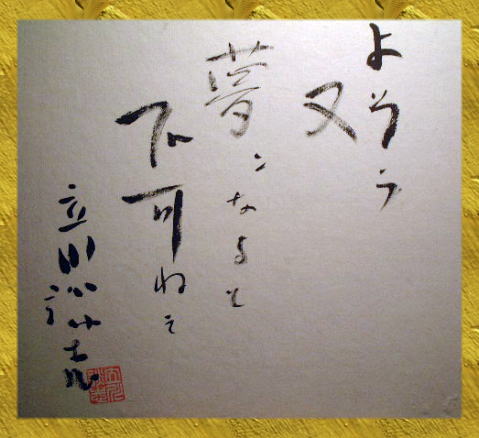 よそう
又
夢ンなると
不可ねえ
立川談志